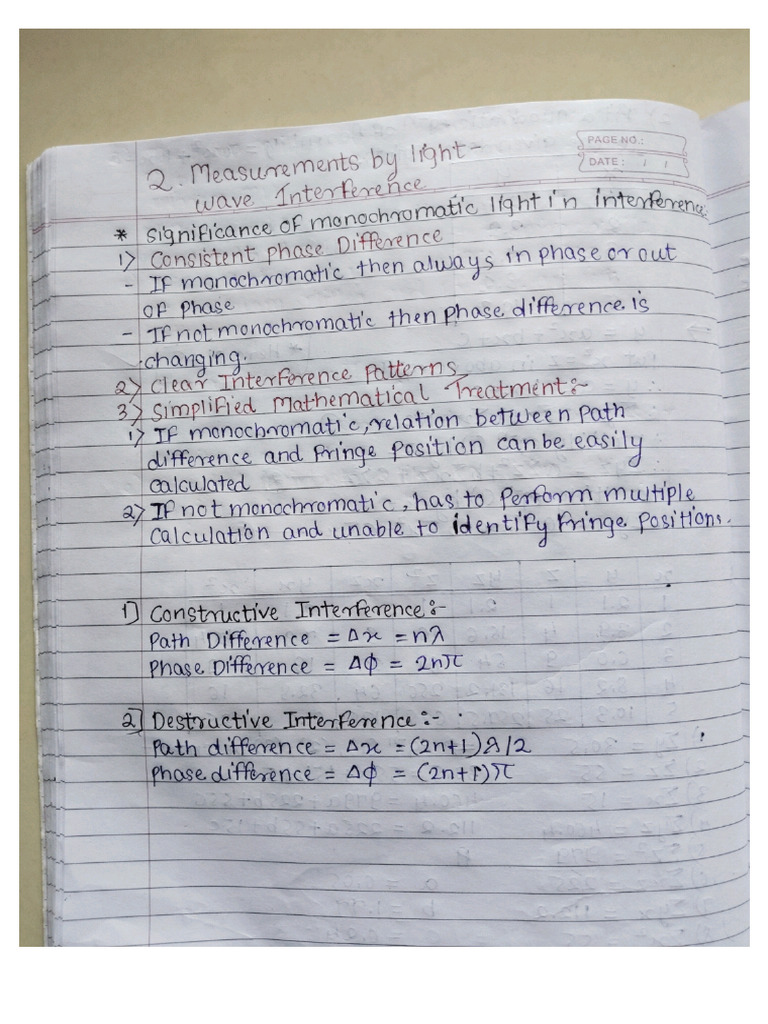 PAGE NO.:
DATE: / /
2. Measurements by light-
wave Interference
* Significance of monochromatic light in interference
1) Consistent Phase Difference
- If monochromatic then always in phase or out
of phase
- If not monochromatic then phase difference is
changing.
2) Clear Interference Patterns
3) Simplified Mathematical Treatment:-
1) If monochromatic, relation between path
difference and fringe position can be easily
calculated
2) If not monochromatic, has to perform multiple
calculation and unable to identify fringe positions.
1) Constructive Interference:-
Path Difference = Δx = nλ
Phase Difference = Δϕ = 2nπ
2] Destructive Interference:-
Path difference = Δx = (2n+1)λ/2
Phase difference = Δϕ = (2n+1)π